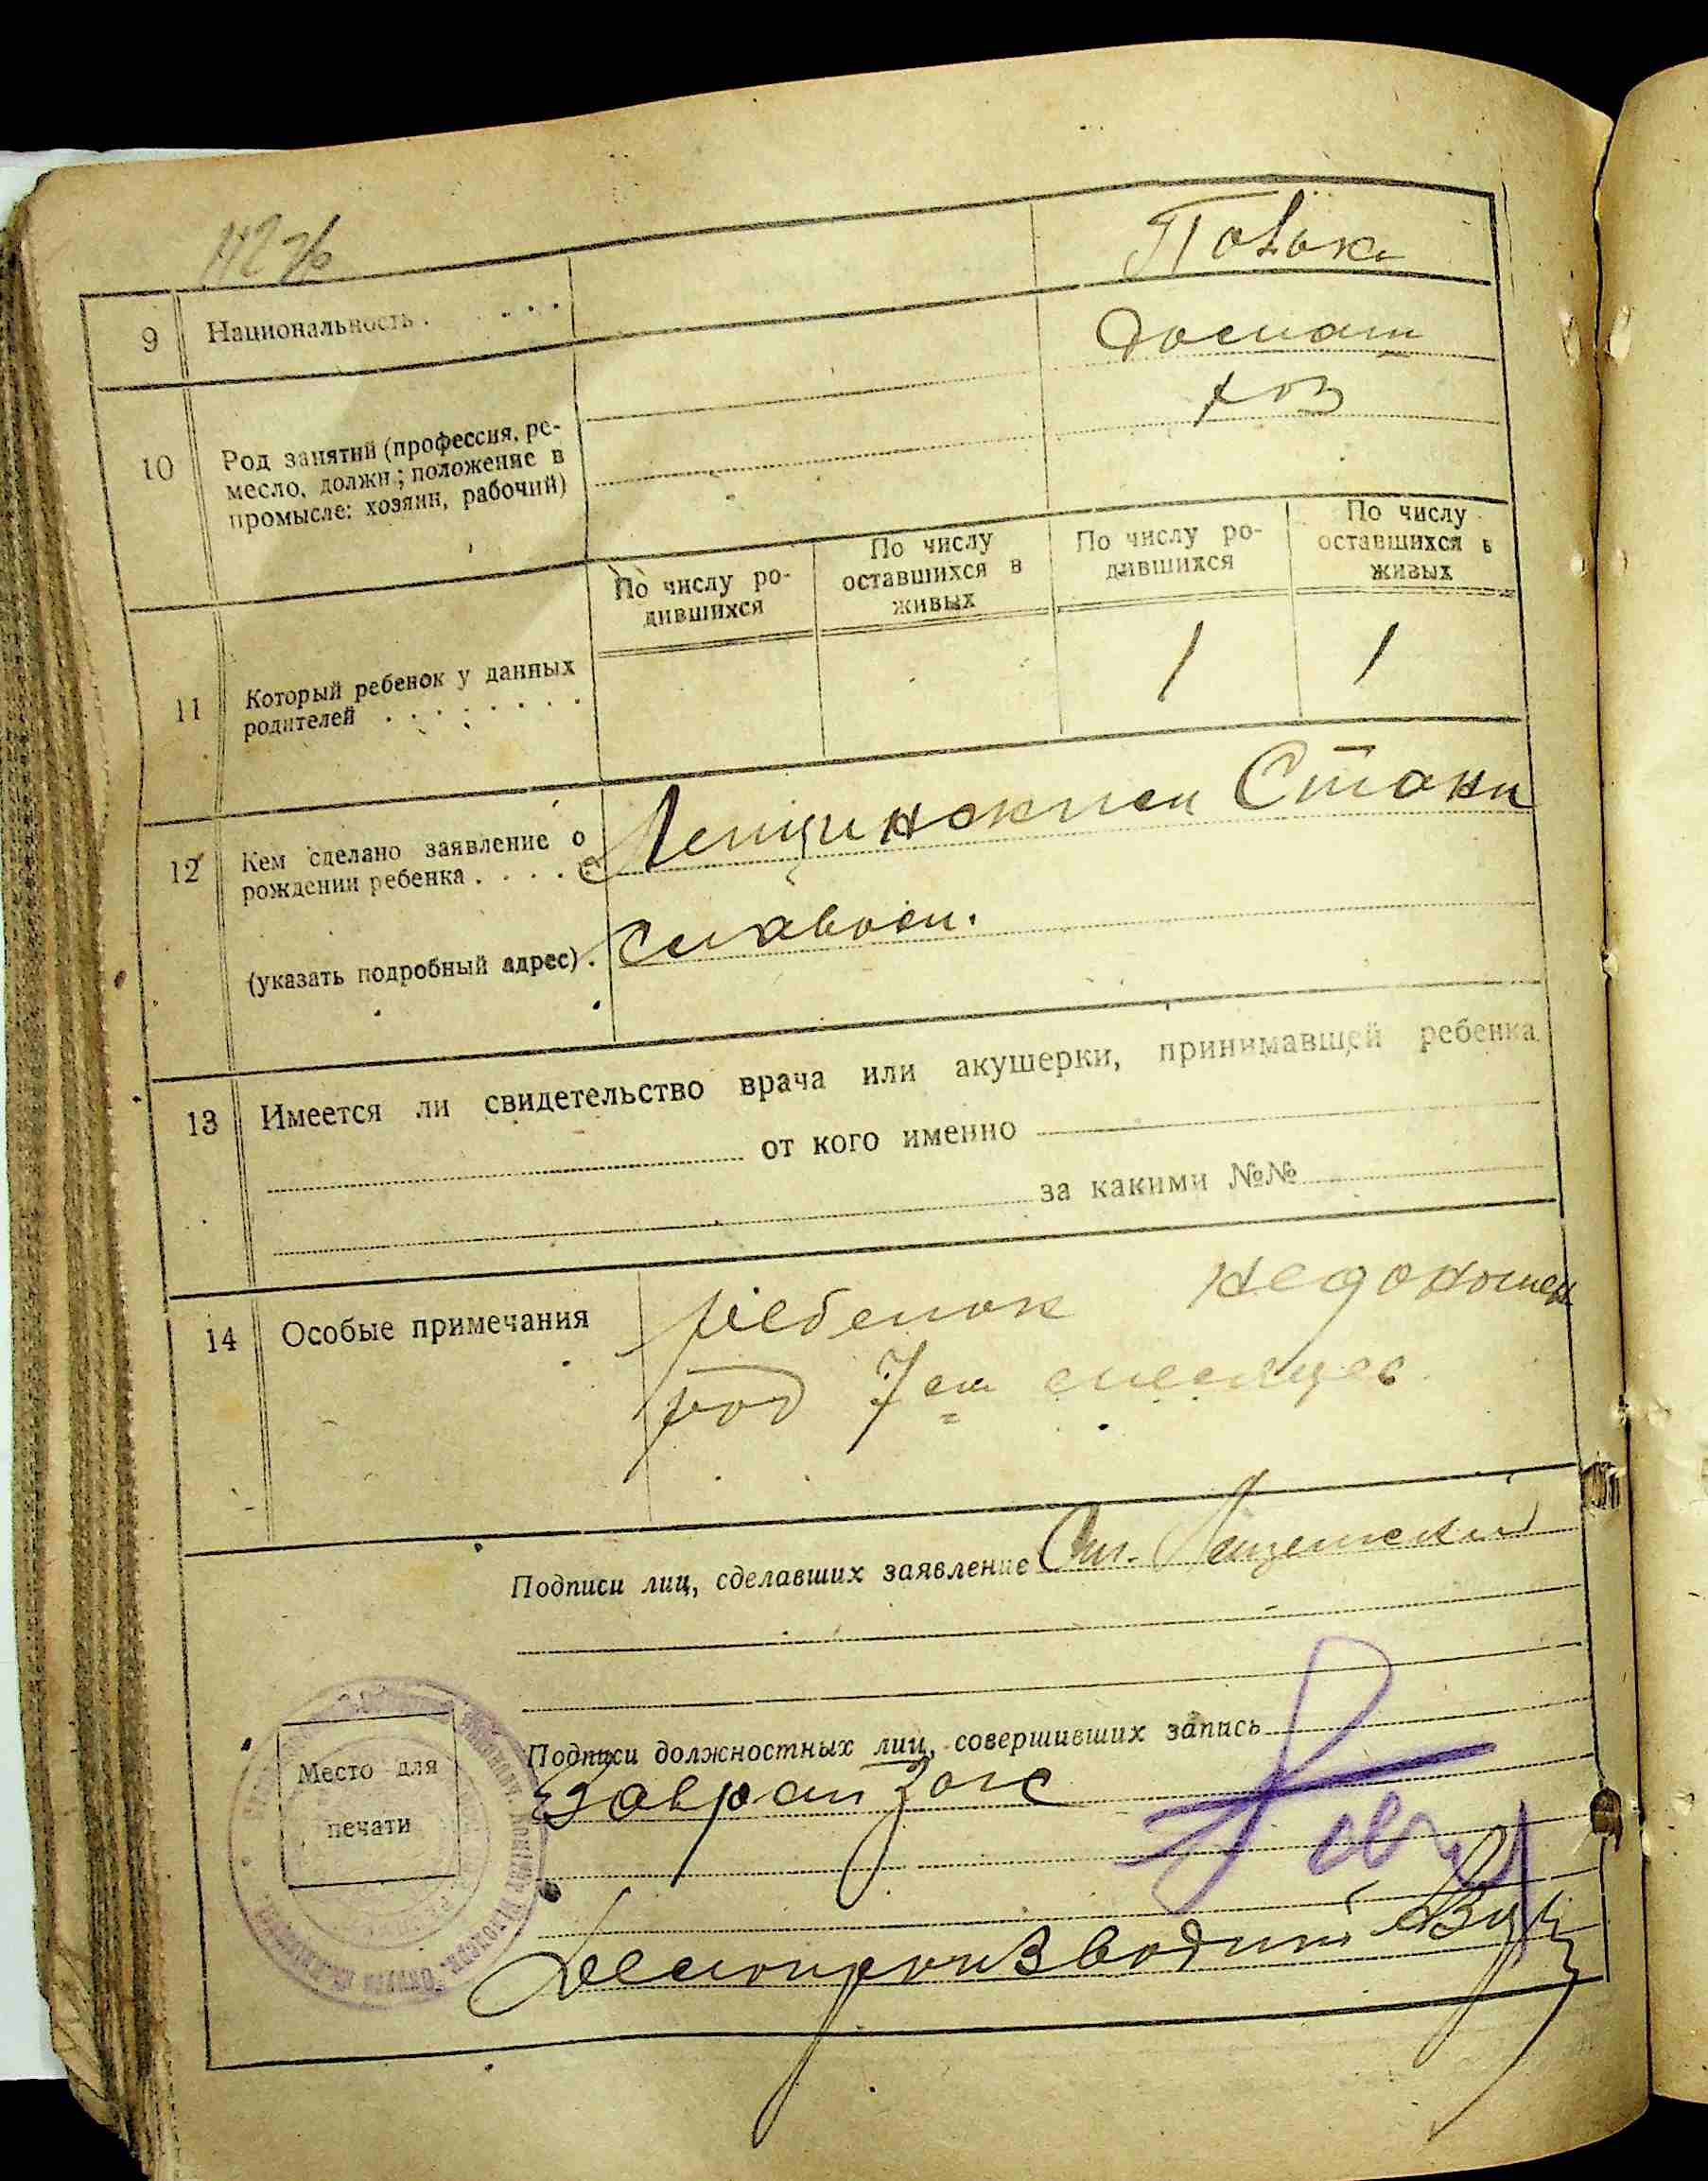 9 Национальность . . . . . . Полька
10 Род занятий (профессия, ре-
месло, должн.; положение в
промысле: хозяин, рабочий)
домаш
хоз
11 Который ребенок у данных
родителей . . . . . . . .
По числу ро-
дившихся
По числу
оставшихся в
живых
По числу ро-
дившихся
По числу
оставшихся в
живых
1 1
12 Кем сделано заявление о
рождении ребенка . . . . .
(указать подробный адрес) .
Лещинским Стани
славом.
13 Имеется ли свидетельство врача или акушерки, принимавшей ребенка
от кого именно
за какими №№
14 Особые примечания
ребенок недоношен
род 7ми месяцев
Подписи лиц, сделавших заявление Ст. Лещинский
Подписи должностных лиц, совершивших запись
Заврайзагс
Место для
печати
Делопроизводит